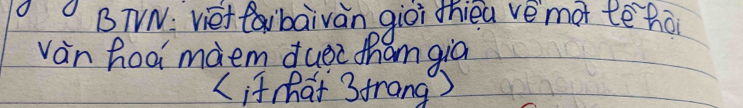 BTVN: viết lại bài văn giới thiệu về một lễ hội
văn hoá mà em được tham gia
< ít nhất 3 trang >